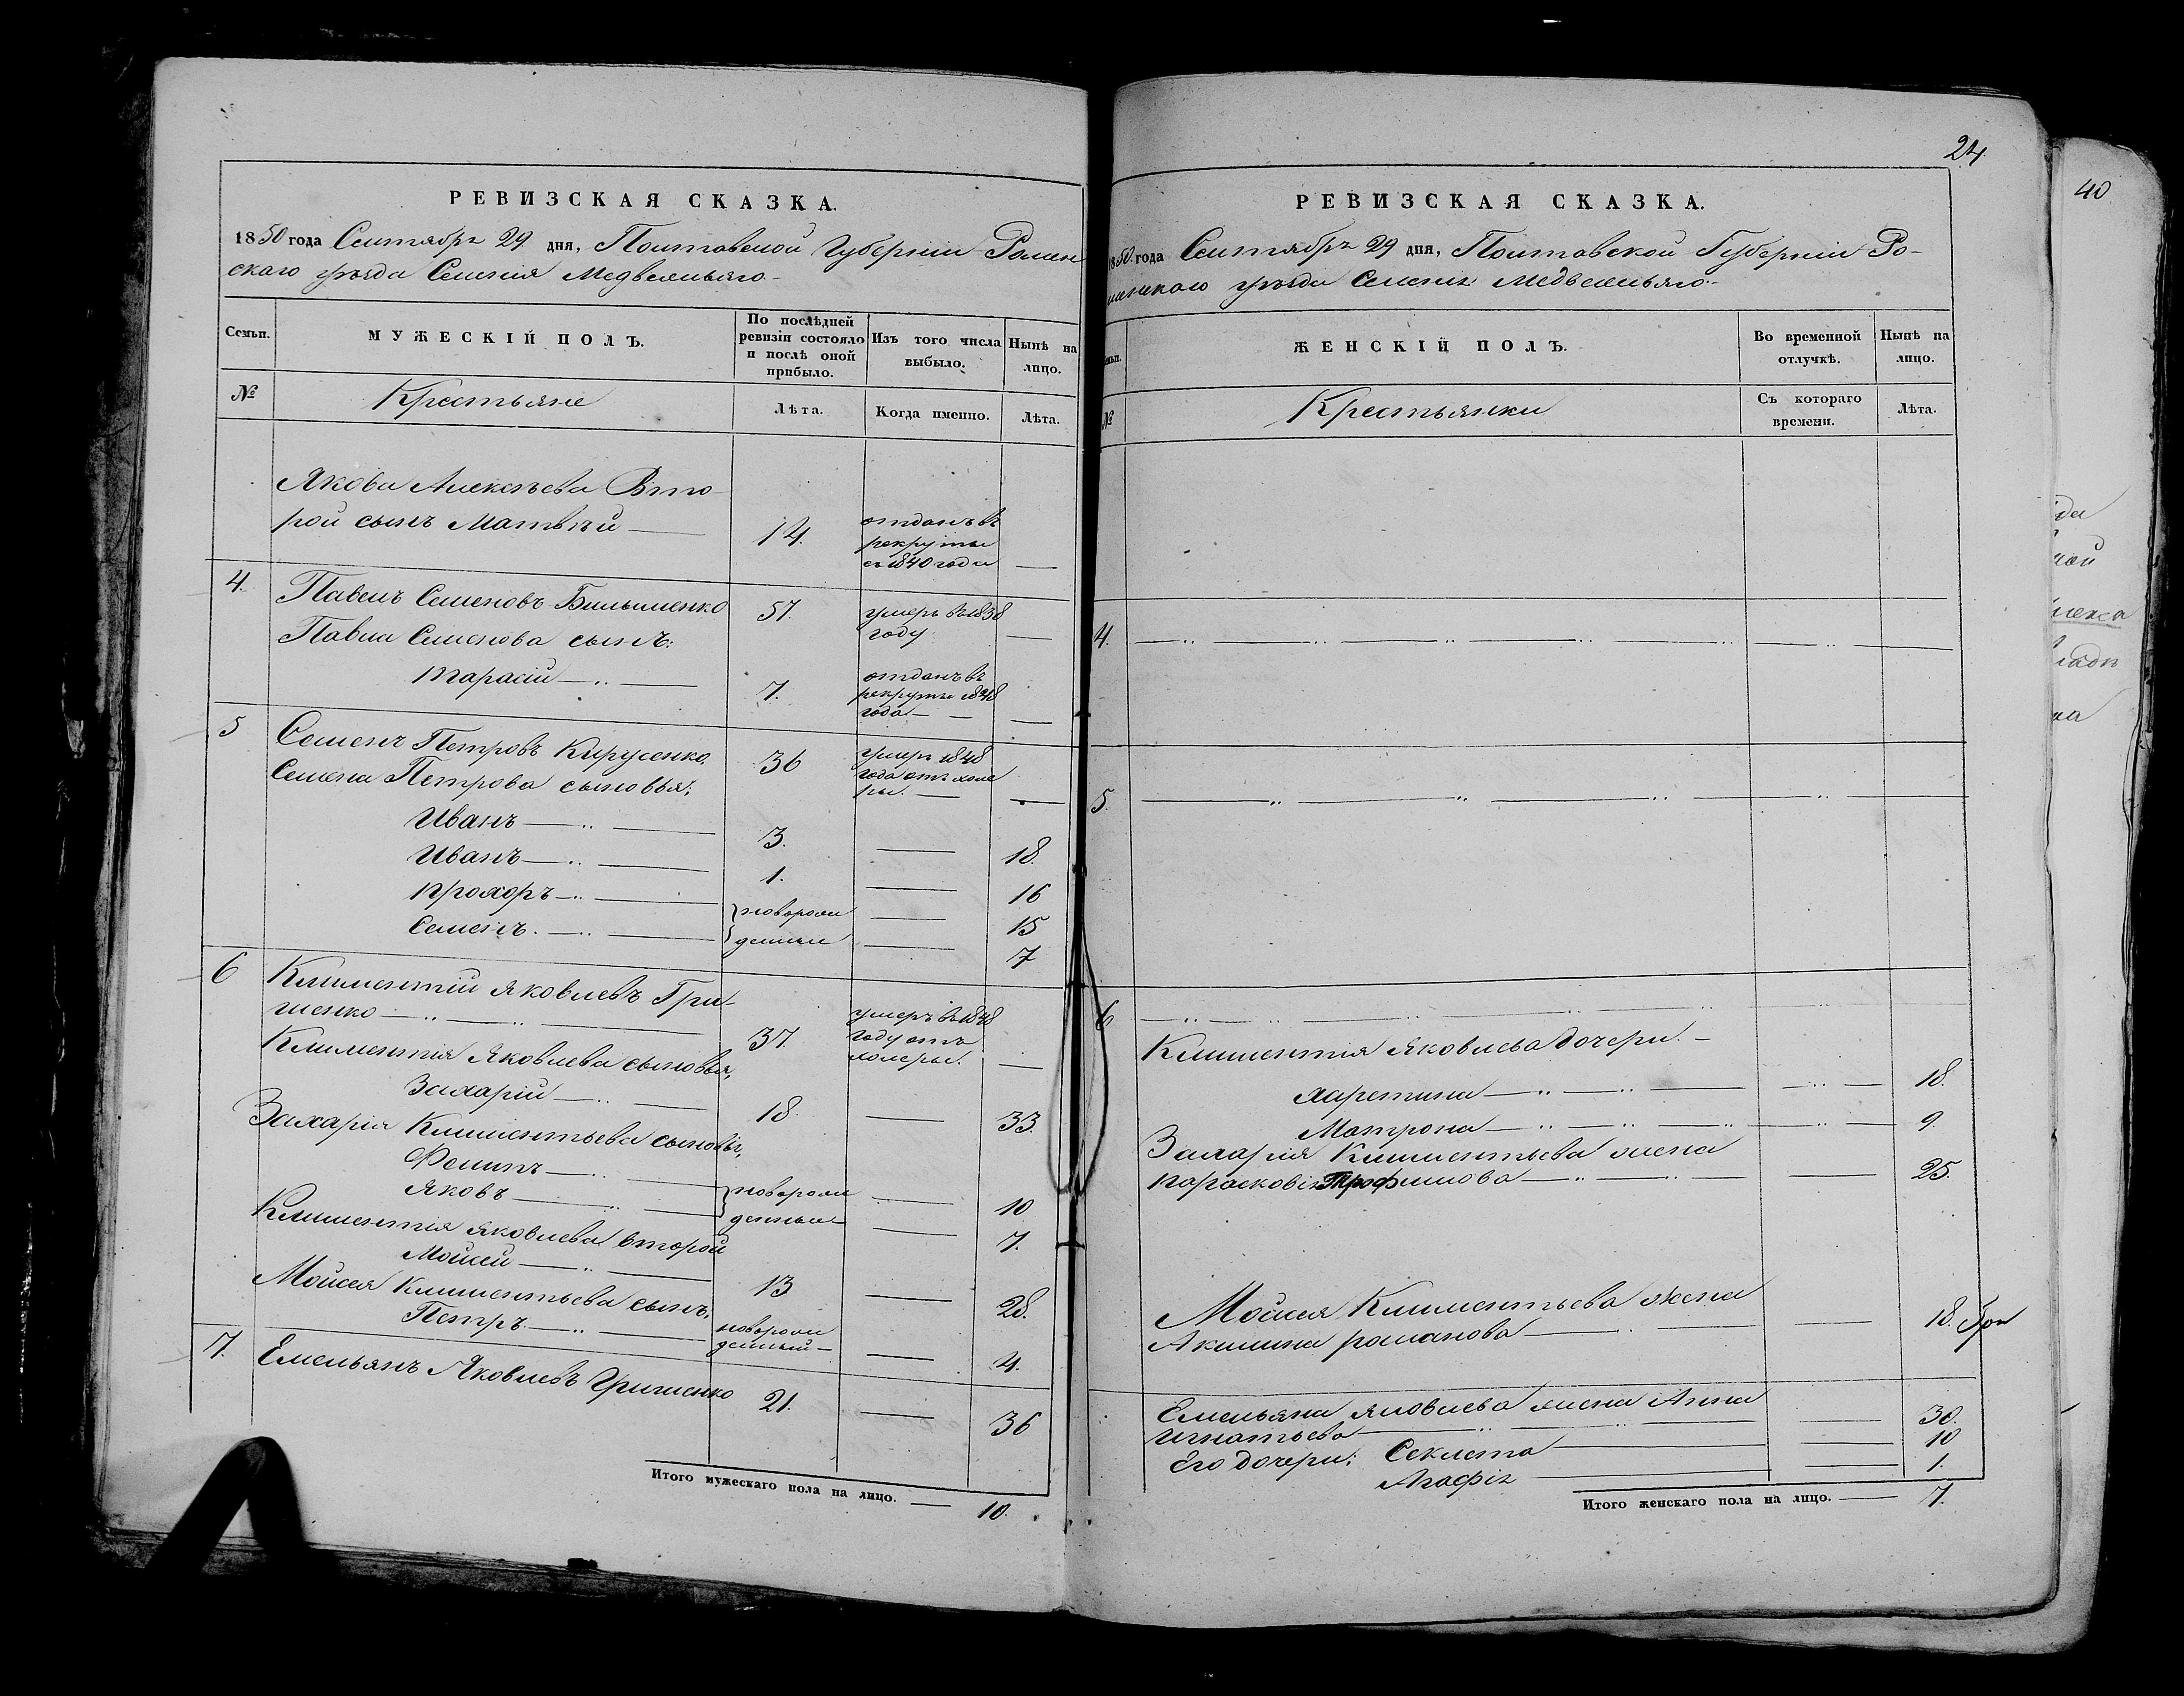 РЕВИЗСКАЯ СКАЗКА.
1850 года Сентября 29 дня, Полтавской Губерніи Ромен
скаго уѣзда Селенія Медвежьяго
Семьи.
МУЖЕСКІЙ ПОЛЪ.
По послѣдней
ревизіи состояло
и послѣ оной
прибыло.
Изъ того числа
выбыло.
Нынѣ на
лицо.
№
Крестьяне
Лѣта.
Когда именно.
Лѣта.
Якова Алексѣева Вто-
рой сынъ Матвѣй 14. отданъ въ
рекруты
съ 1840 года
4. Павелъ Семеновъ 57. умеръ въ 1838
году
Павла Семенова сынъ:
Тарасій 7. отданъ въ
рекруты 1848
года
5 Семенъ Петровъ Кирусенко 36 умеръ 1848
года отъ холе
ры.
Семена Петрова сыновья:
Иванъ 3. 18.
Иванъ 1. 16
Прохоръ новорож 15
Семенъ. денные 7
6 Климентій Яковлевъ Гри-
шенко 37. умеръ въ 1848
году отъ
холеры.
Климентія Яковлева сыновья,
Захарій 18. 33.
Захарія Климентьева сыновья,
Филипъ новорож 10
Яковъ денные 7.
Климентія Яковлева второй
Мойсей 13 28.
Мойсея Климентьева сынъ,
Петръ новорож
денный 4.
7. Емельянъ Яковлевъ Гришенко 21. 36
Итого мужескаго пола на лицо. 10.
24.
РЕВИЗСКАЯ СКАЗКА.
1850 года Сентября 29 дня, Полтавской Губерніи Ро-
менскаго уѣзда Селенія Медвежьяго
Семьи.
ЖЕНСКІЙ ПОЛЪ.
Во временной
отлучкѣ.
Нынѣ на
лицо.
№
Крестьянки
Съ котораго
времени.
Лѣта.
4.
5.
6
Климентія Яковлева дочери.
Харетина 18.
Матрона 9.
Захарія Климентьева жена
Парасковія Трофимова 25.
Мойсея Климентьева жена
Акилина Романова 18.
Емельяна Яковлева жена Анна
Игнатьева 30.
Его дочери: Секлета 10
Агафія 1.
Итого женскаго пола на лицо. 7.
40